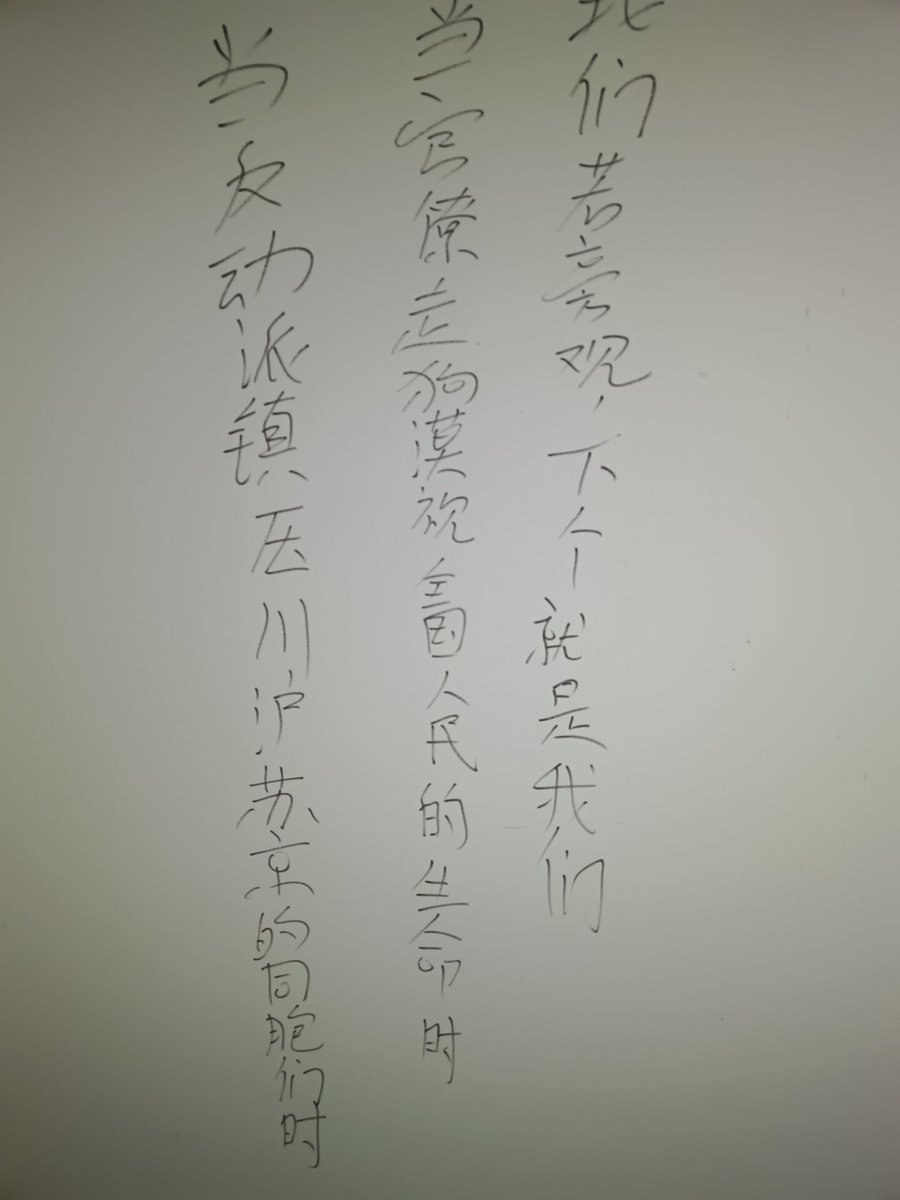 当反动派镇压川沪苏京的同胞们时
当官僚走狗漠视全国人民的生命时
们若旁观，下个就是我们